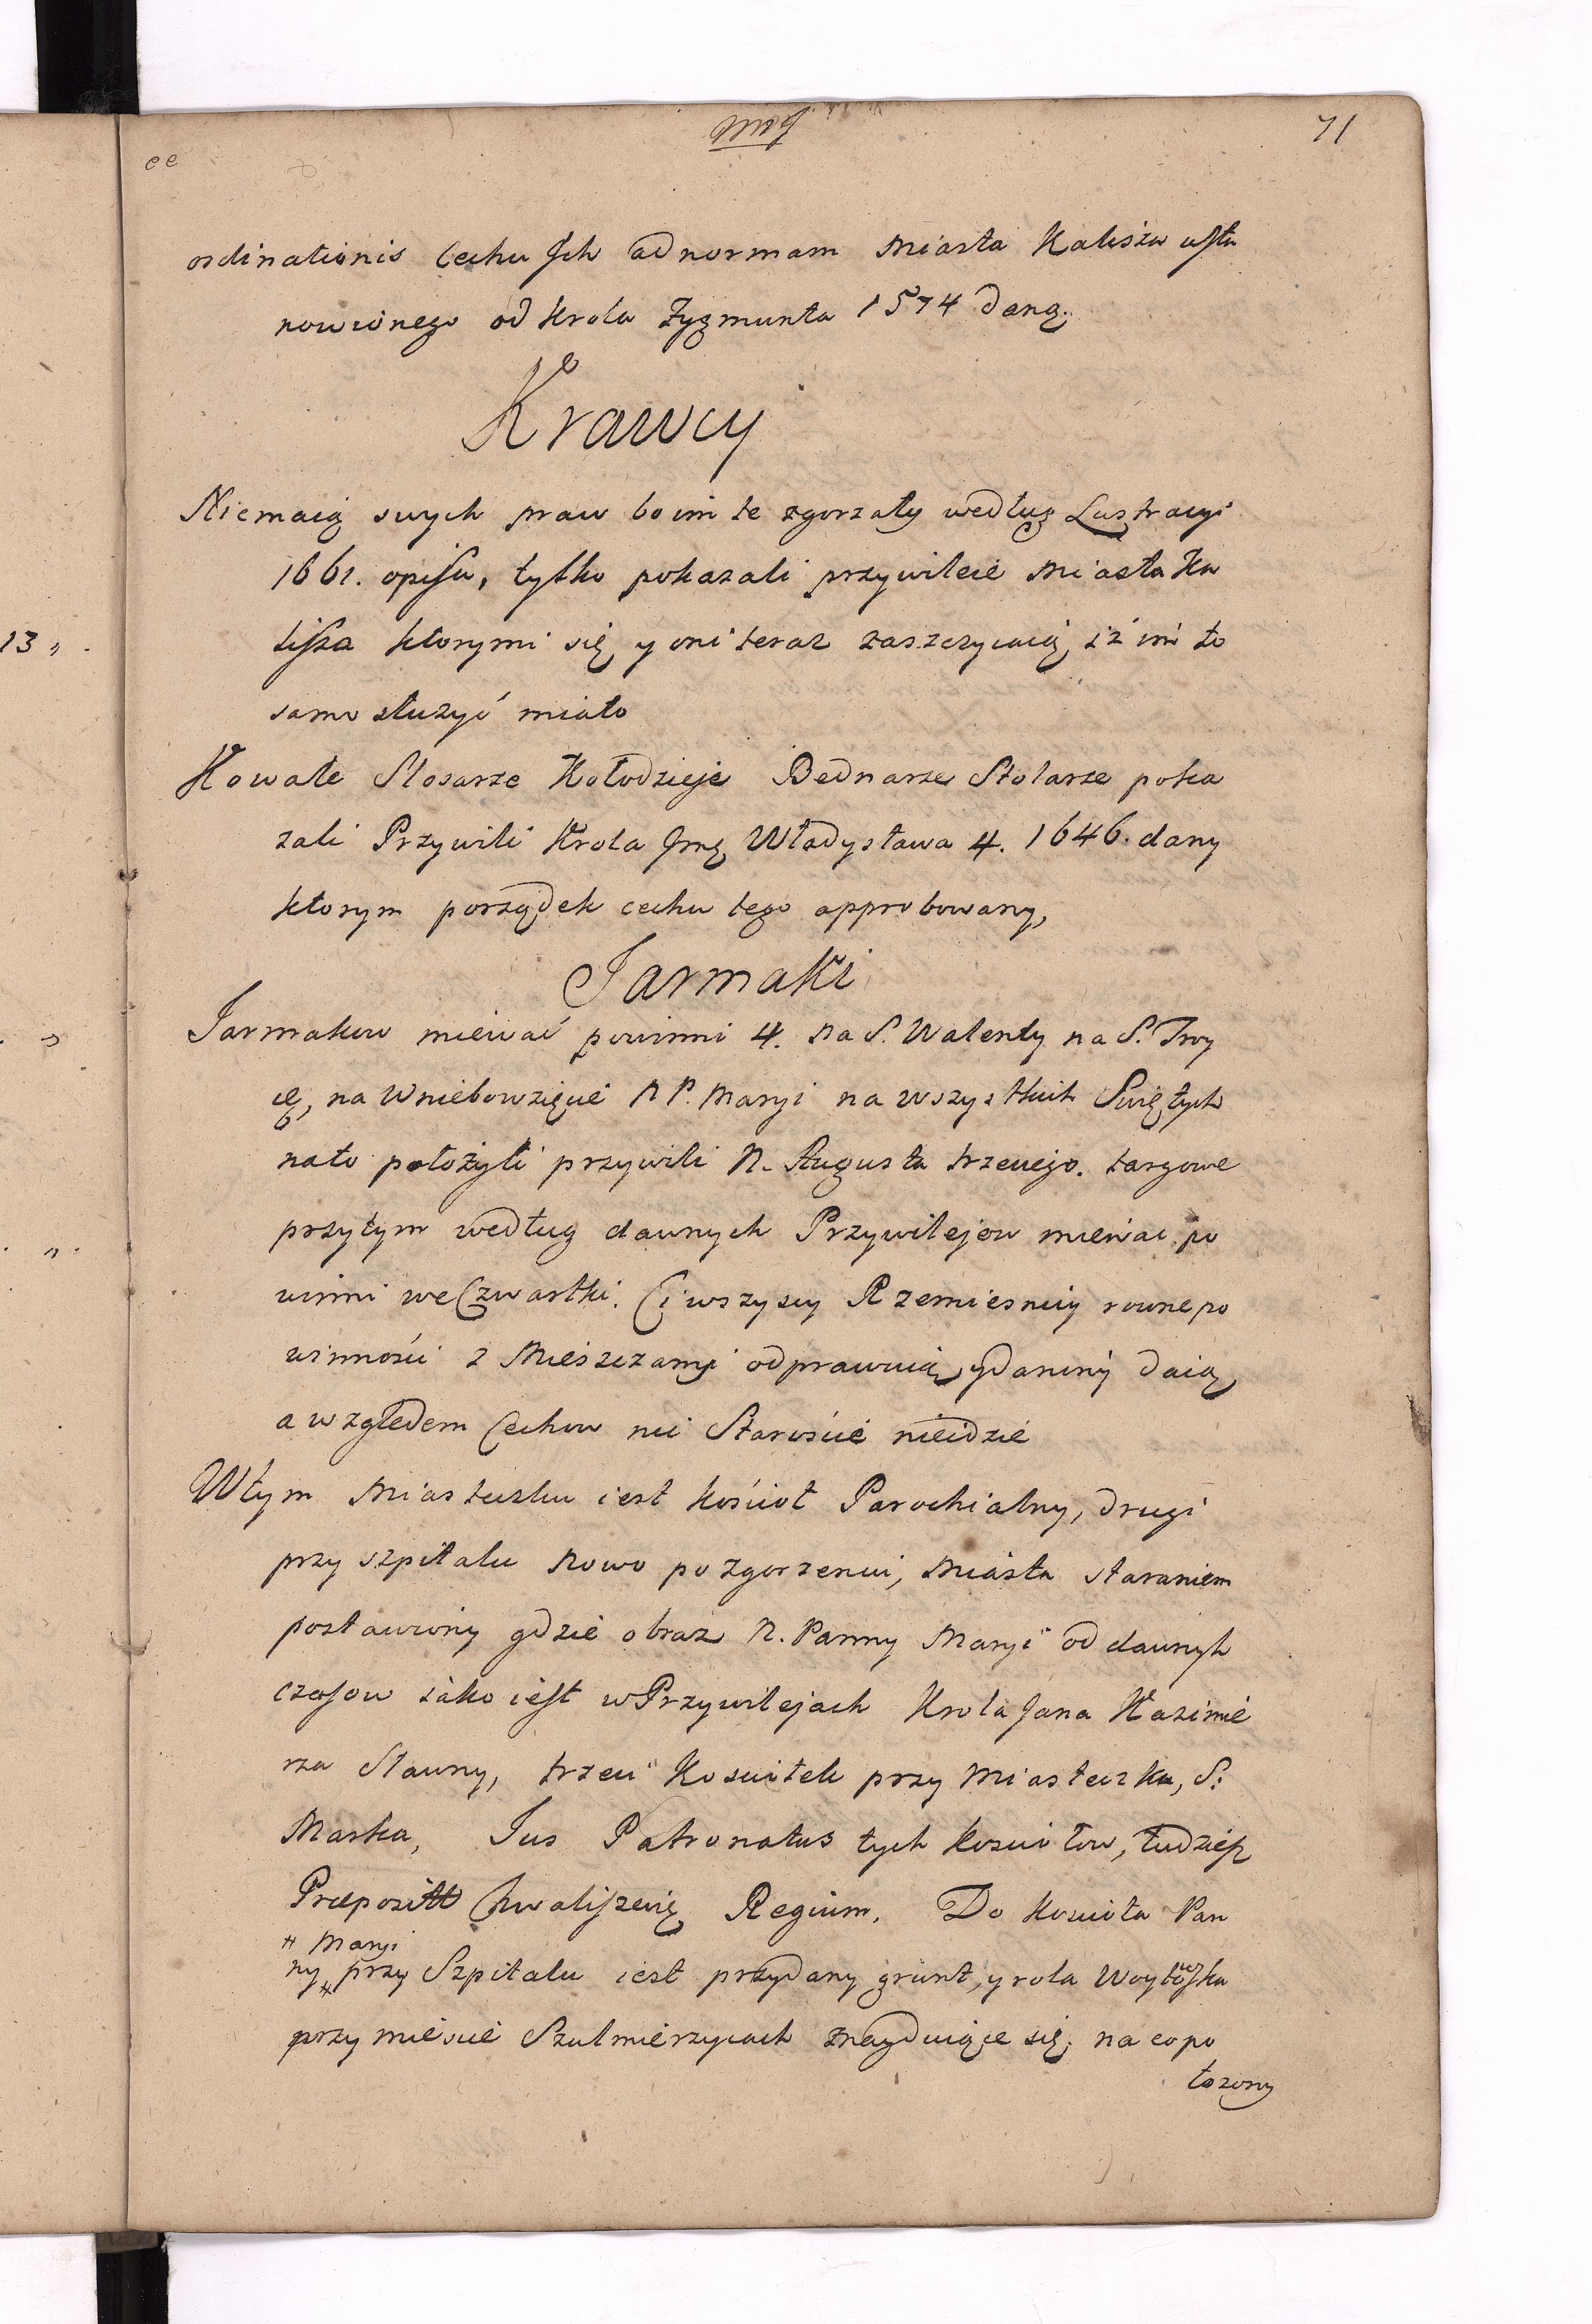 71
ee
ordinationis Cechu Jch ad normam Miasta Kalisza usta
nowionego od Krola Zygmunta 1574 daną.
Krawcy
Niemaią swych praw bo im te zgorzały według Lustracyi
1661. opisu, tylko pokazali przywileie Miasta Ka
lisza ktorymi się y oni teraz zaszczycaią, iż im to
samo służyć miało
Kowale Slosarze Kołodzieje Bednarze Stolarze poka
zali Przywili Krola Jmę Władysława 4. 1646. dany
ktorym porządek cechu tego approbowany,
Jarmaki
Jarmakow miewać powinni 4. na S. Walenty na S. Troy
cę, na Wniebowzięcie N P. Maryi na wszystkich Swiętych
nato położyli przywili N. Augusta trzeciego. targowe
przytym według dawnych Przywilejow miewac po
winni we Czwartki. Ci wszyscy Rzemiesnicy rowne po
winności z Mieszczamyi odprawuią, y daniny daią,
a względem Cechow nic Starościе nieidzie
Wtym Miasteczku iest kościoł Parochialny, drugi
przy szpitalu nowo po zgorzeniu, Miasta staraniem
postawiony gdzie obraz N. Panny Maryi od dawnych
czasow iako iest w Przywilejach Krola Jana Kazimie
rza Sławny, trzeci Kosciołek przy Miasteczku, S:
Marka, Jus Patronatus tych Kosciołow, tudziesz
Præpozitt Chwaliszewię Regium. Do Kosciola Pan
# Maryi
ny # przy Szpitalu iest przydany grunt, y rola Woytowska
przy mieście Szulmierzycach znayduiące się, na co po
łozony
13 "